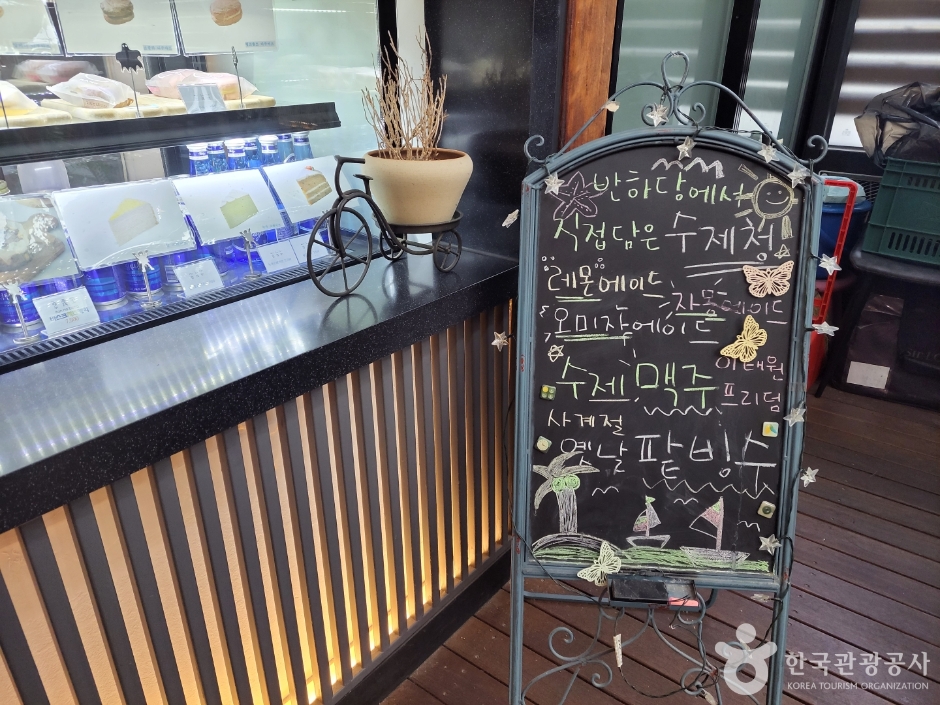 반하당에서
직접담은 수제청
레몬에이드
자몽에이드
오미자에이드
수제맥주
이태원
프리덤
사계절
옛날 팥빙수
한국관광공사
KOREA TOURISM ORGANIZATION